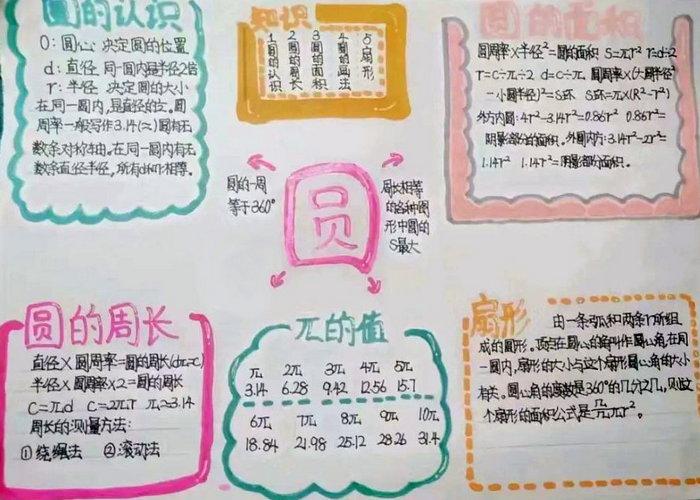 圆的认识
O:圆心 决定圆的位置
d:直径 同一圆内是半径2倍
r:半径 决定圆的大小
在同一圆内,是直径的½。圆
周率一般写作3.14(π)圆有无
数条对称轴。在同一圆内有无
数条直径半径。所有d和r相等。
知识
1圆的认识
2圆的周长
3圆的面积
4圆的画法
5扇形
圆的面积
圆周率×半径²=圆的面积 S=πr² r=d÷2
r=C÷π÷2 d=C÷π 圆周率×(大圆半径²
-小圆半径²)=S环 S环=π×(R²-r²)
外方内圆:4r²-3.14r²=0.86r² 0.86r²=
阴影部份的面积。外圆内方:3.14r²-2r²=
1.14r² 1.14r²=阴影部份面积。
圆的一周
等于360°
圆
周长相等
的各种图
形中圆的
S最大
圆的周长
直径×圆周率=圆的周长(dπ=C)
半径×圆周率×2=圆的周长
C=πd C=2πr π≈3.14
周长的测量方法:
①绕绳法 ②滚动法
π的值
π 2π 3π 4π 5π
3.14 6.28 9.42 12.56 15.7
6π 7π 8π 9π 10π
18.84 21.98 25.12 28.26 31.4
扇形
由一条弧和两条r所组
成的圆形。顶点在圆心的角叫作圆心角,在同
一圆内,扇形的大小与这个扇形圆心角的大小
有关。圆心角的度数是360°的几分之几,则这
个扇形的面积公式是几/几πr²。